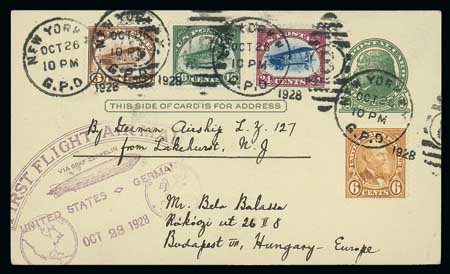 NEW YORK, N.Y.
OCT 26
10 PM
1928
G.P.O.
NEW YORK, N.Y.
OCT 26
10 PM
G.P.O.
1928
NEW YORK, N.Y.
OCT 26
10 PM
1928
G.P.O.
NEW YORK, N.Y.
OCT 26
10 PM
G.P.O.
1928
CENTS
24 CENTS
THIS SIDE OF CARD IS FOR ADDRESS
By German Airship L.Z. 127
from Lakehurst, N J
FIRST FLIGHT AIR MAIL
VIA GRAF ZEPPELIN
UNITED STATES GERMANY
OCT 28 1928
6 CENTS 6
Mr. Bela Balassa
Rákóczi ut 26 II 8
Budapest VII, Hungary - Europe